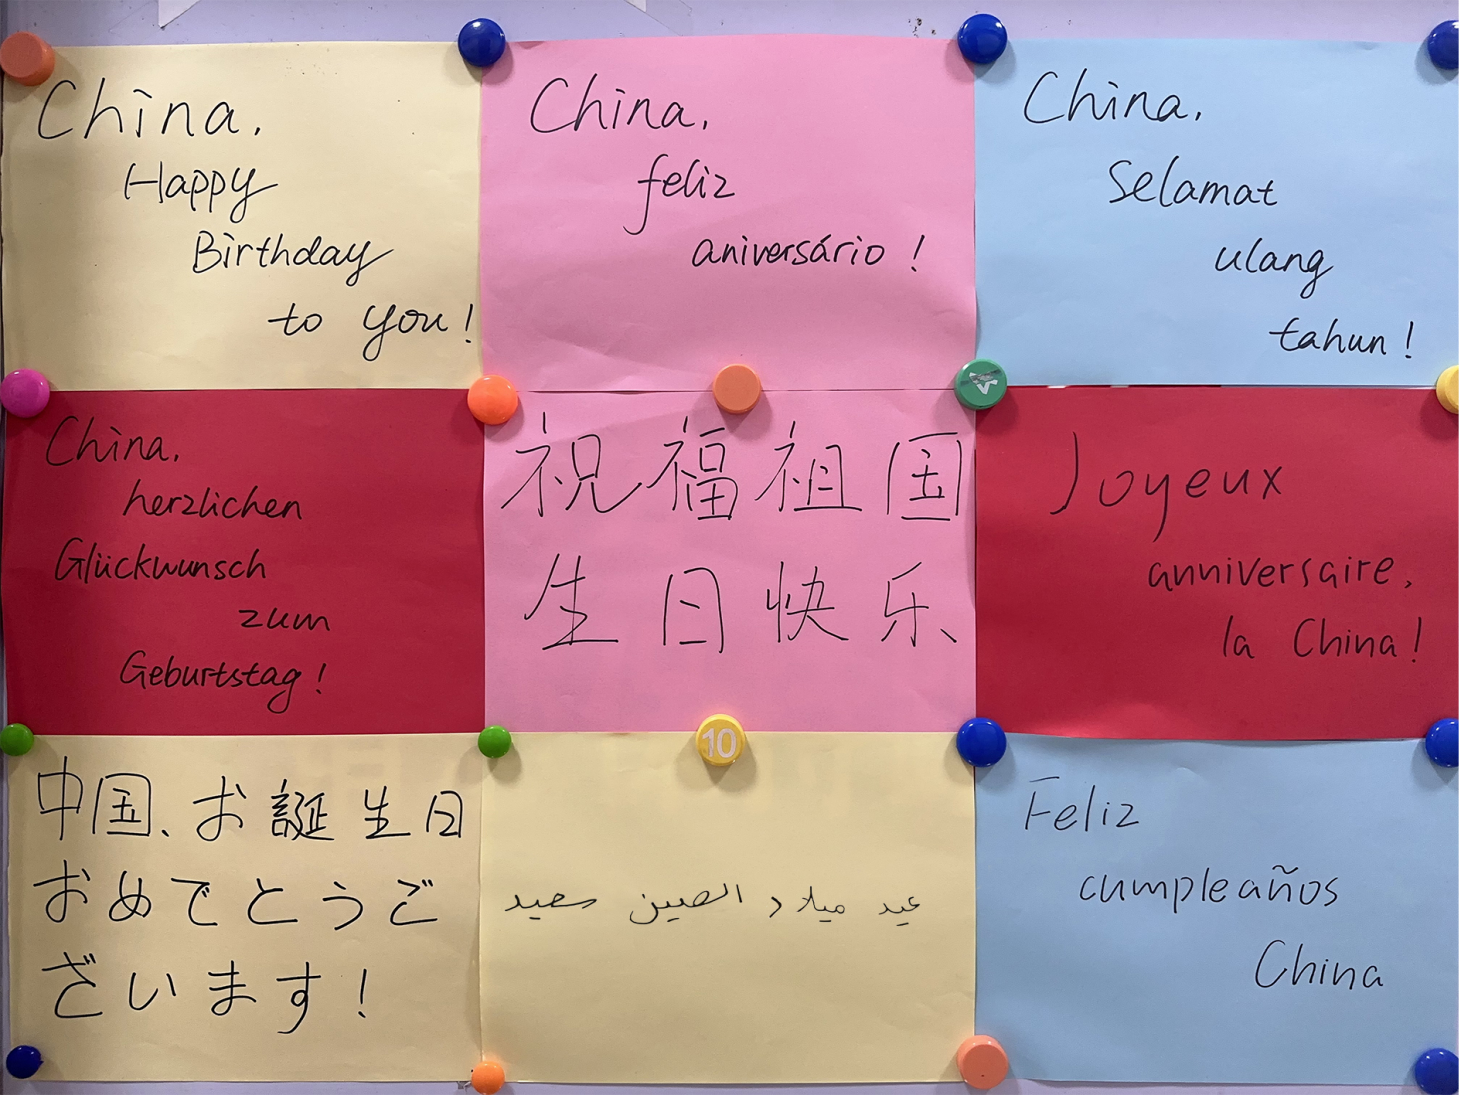 China,
Happy
Birthday
to you!
China,
feliz
aniversário!
China,
Selamat
ulang
tahun!
China,
herzlichen
Glückwunsch
zum
Geburtstag!
祝福祖国
生日快乐
Joyeux
anniversaire,
la China!
中国、お誕生日
おめでとうご
ざいます!
10
عيد ميلاد الصين سعيد
Feliz
cumpleaños
China